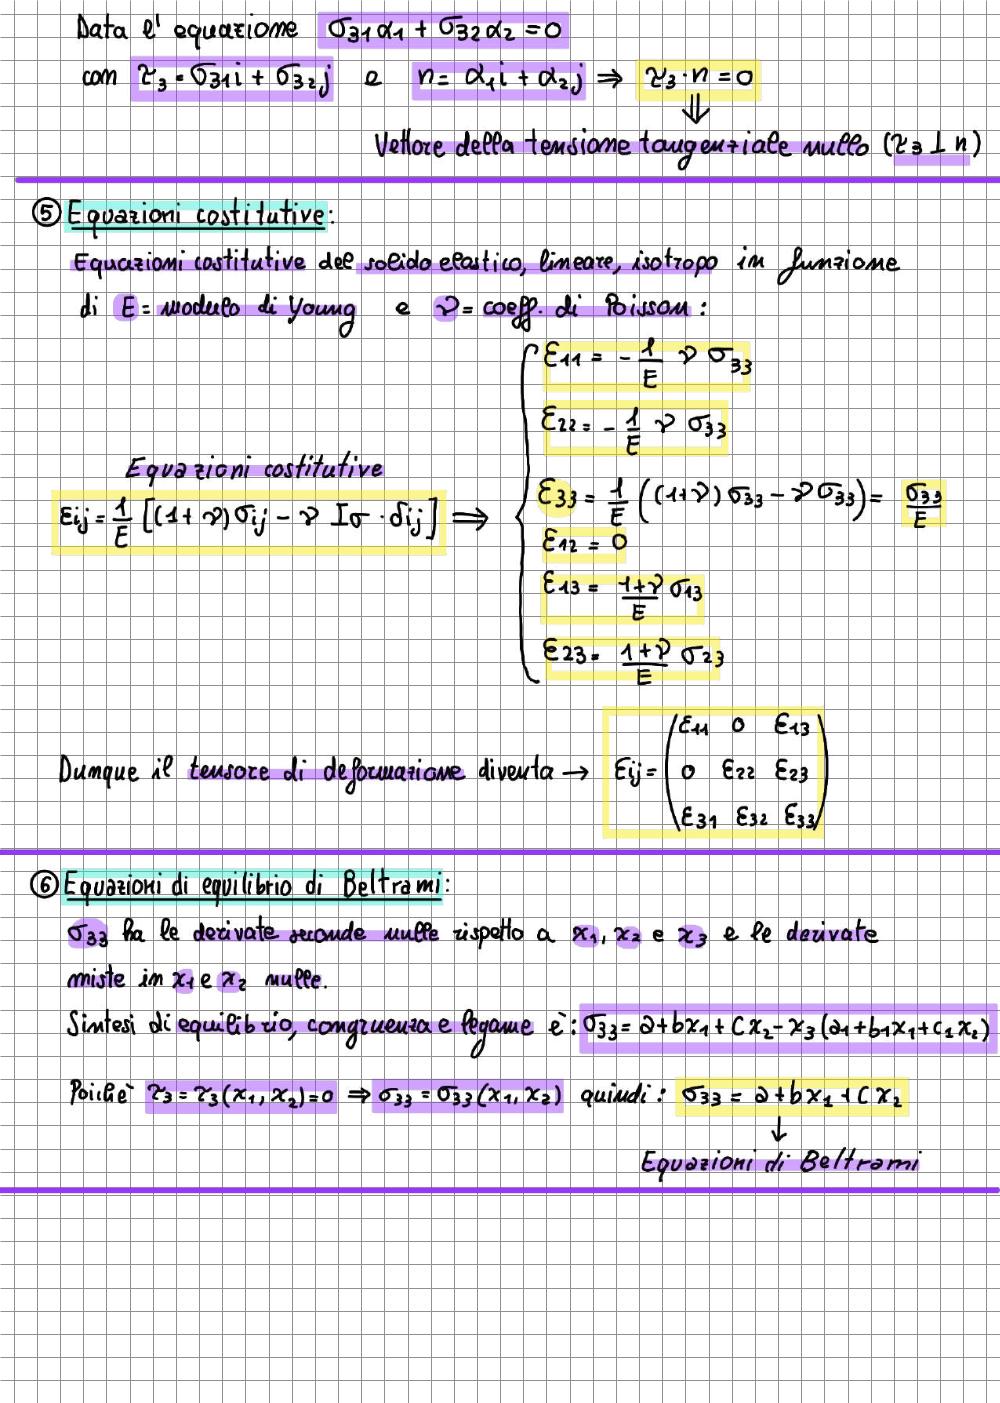 Data l'equazione σ31α1 + σ32α2 = 0
con τ3 = σ31i + σ32j e n = α1i + α2j ⇒ τ3·n = 0
⇓
Vettore della tensione tangenziale nullo (τ3 ⊥ n)
⑤ Equazioni costitutive:
Equazioni costitutive del solido elastico, lineare, isotropo in funzione
di E = modulo di Young e ν = coeff. di Poisson:
ε11 = - 1/E ν σ33
ε22 = - 1/E ν σ33
Equazioni costitutive
εij = 1/E [(1+ν)σij - ν Iσ · δij] ⇒
ε33 = 1/E ((1+ν)σ33 - νσ33) = σ33/E
ε12 = 0
ε13 = 1+ν/E σ13
ε23 = 1+ν/E σ23
Dunque il tensore di deformazione diventa → εij =
ε11 0 ε13
0 ε22 ε23
ε31 ε32 ε33
⑥ Equazioni di equilibrio di Beltrami:
σ33 ha le derivate seconde nulle rispetto a x1, x2 e x3 e le derivate
miste in x1 e x2 nulle.
Sintesi di equilibrio, congruenza e legame è: σ33 = a+bx1+cx2-x3(a1+b1x1+c1x2)
Poichè τ3 = τ3(x1, x2) = 0 ⇒ σ33 = σ33(x1, x2) quindi: σ33 = a+bx1+cx2
↓
Equazioni di Beltrami